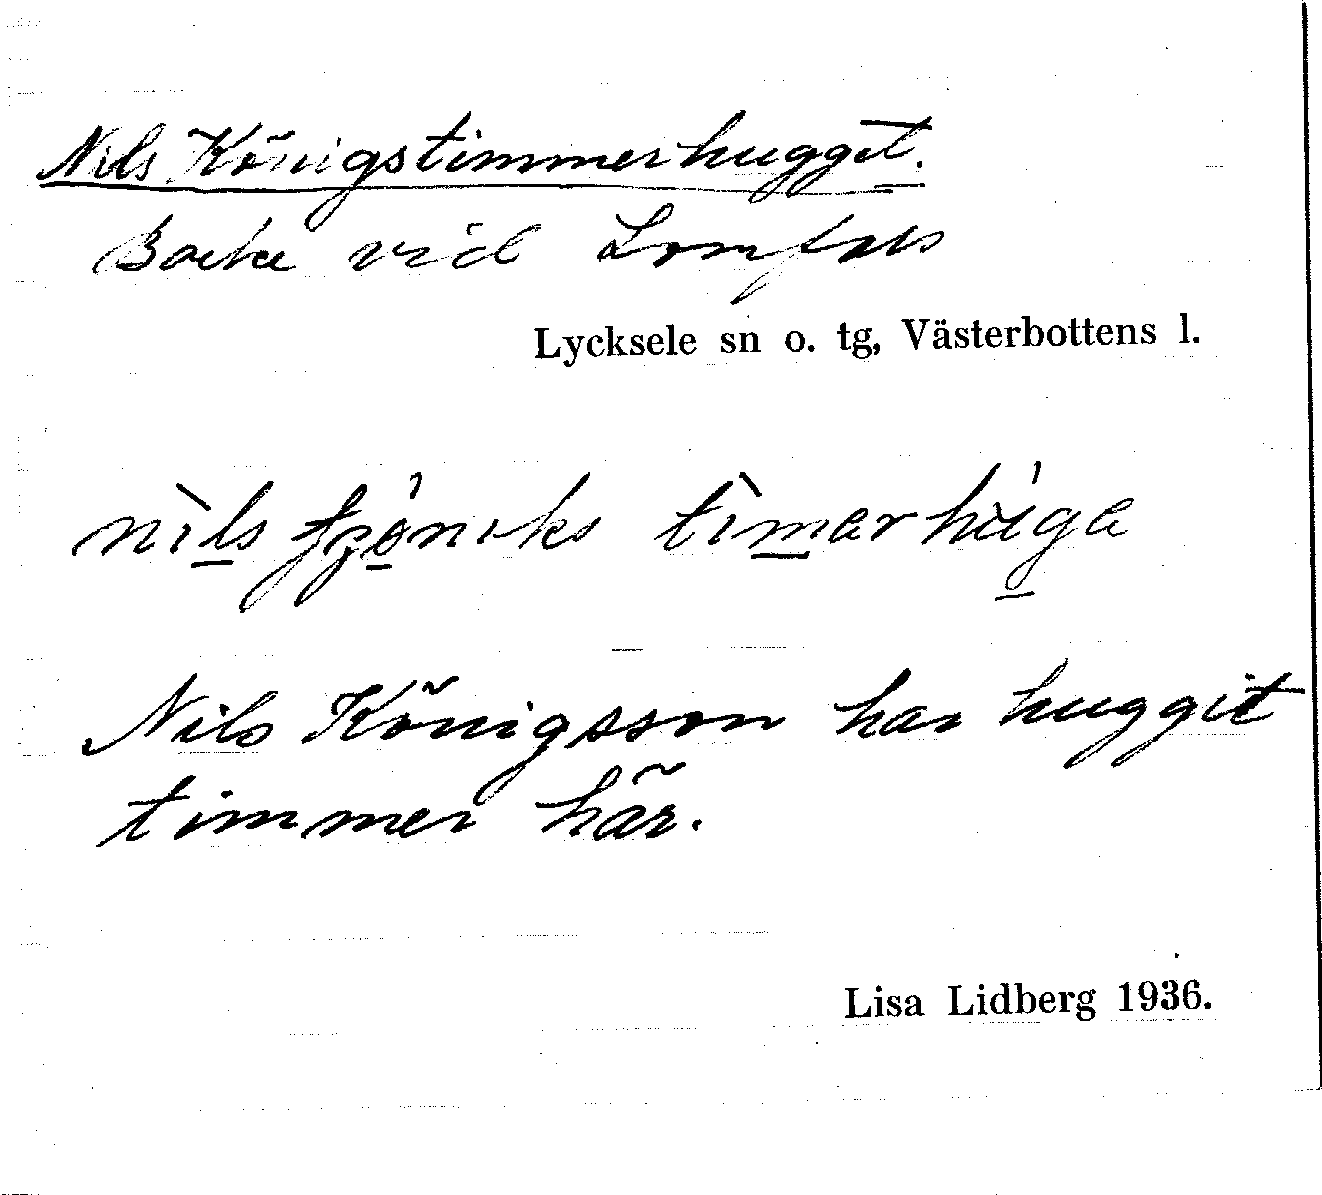 Nils Königstimmerhugget.
Backe vid Lomfors
Lycksele sn o. tg, Västerbottens l.
nils tjöniks timarhuga
Nils Königsson har huggit
timmer här.
Lisa Lidberg 1936.